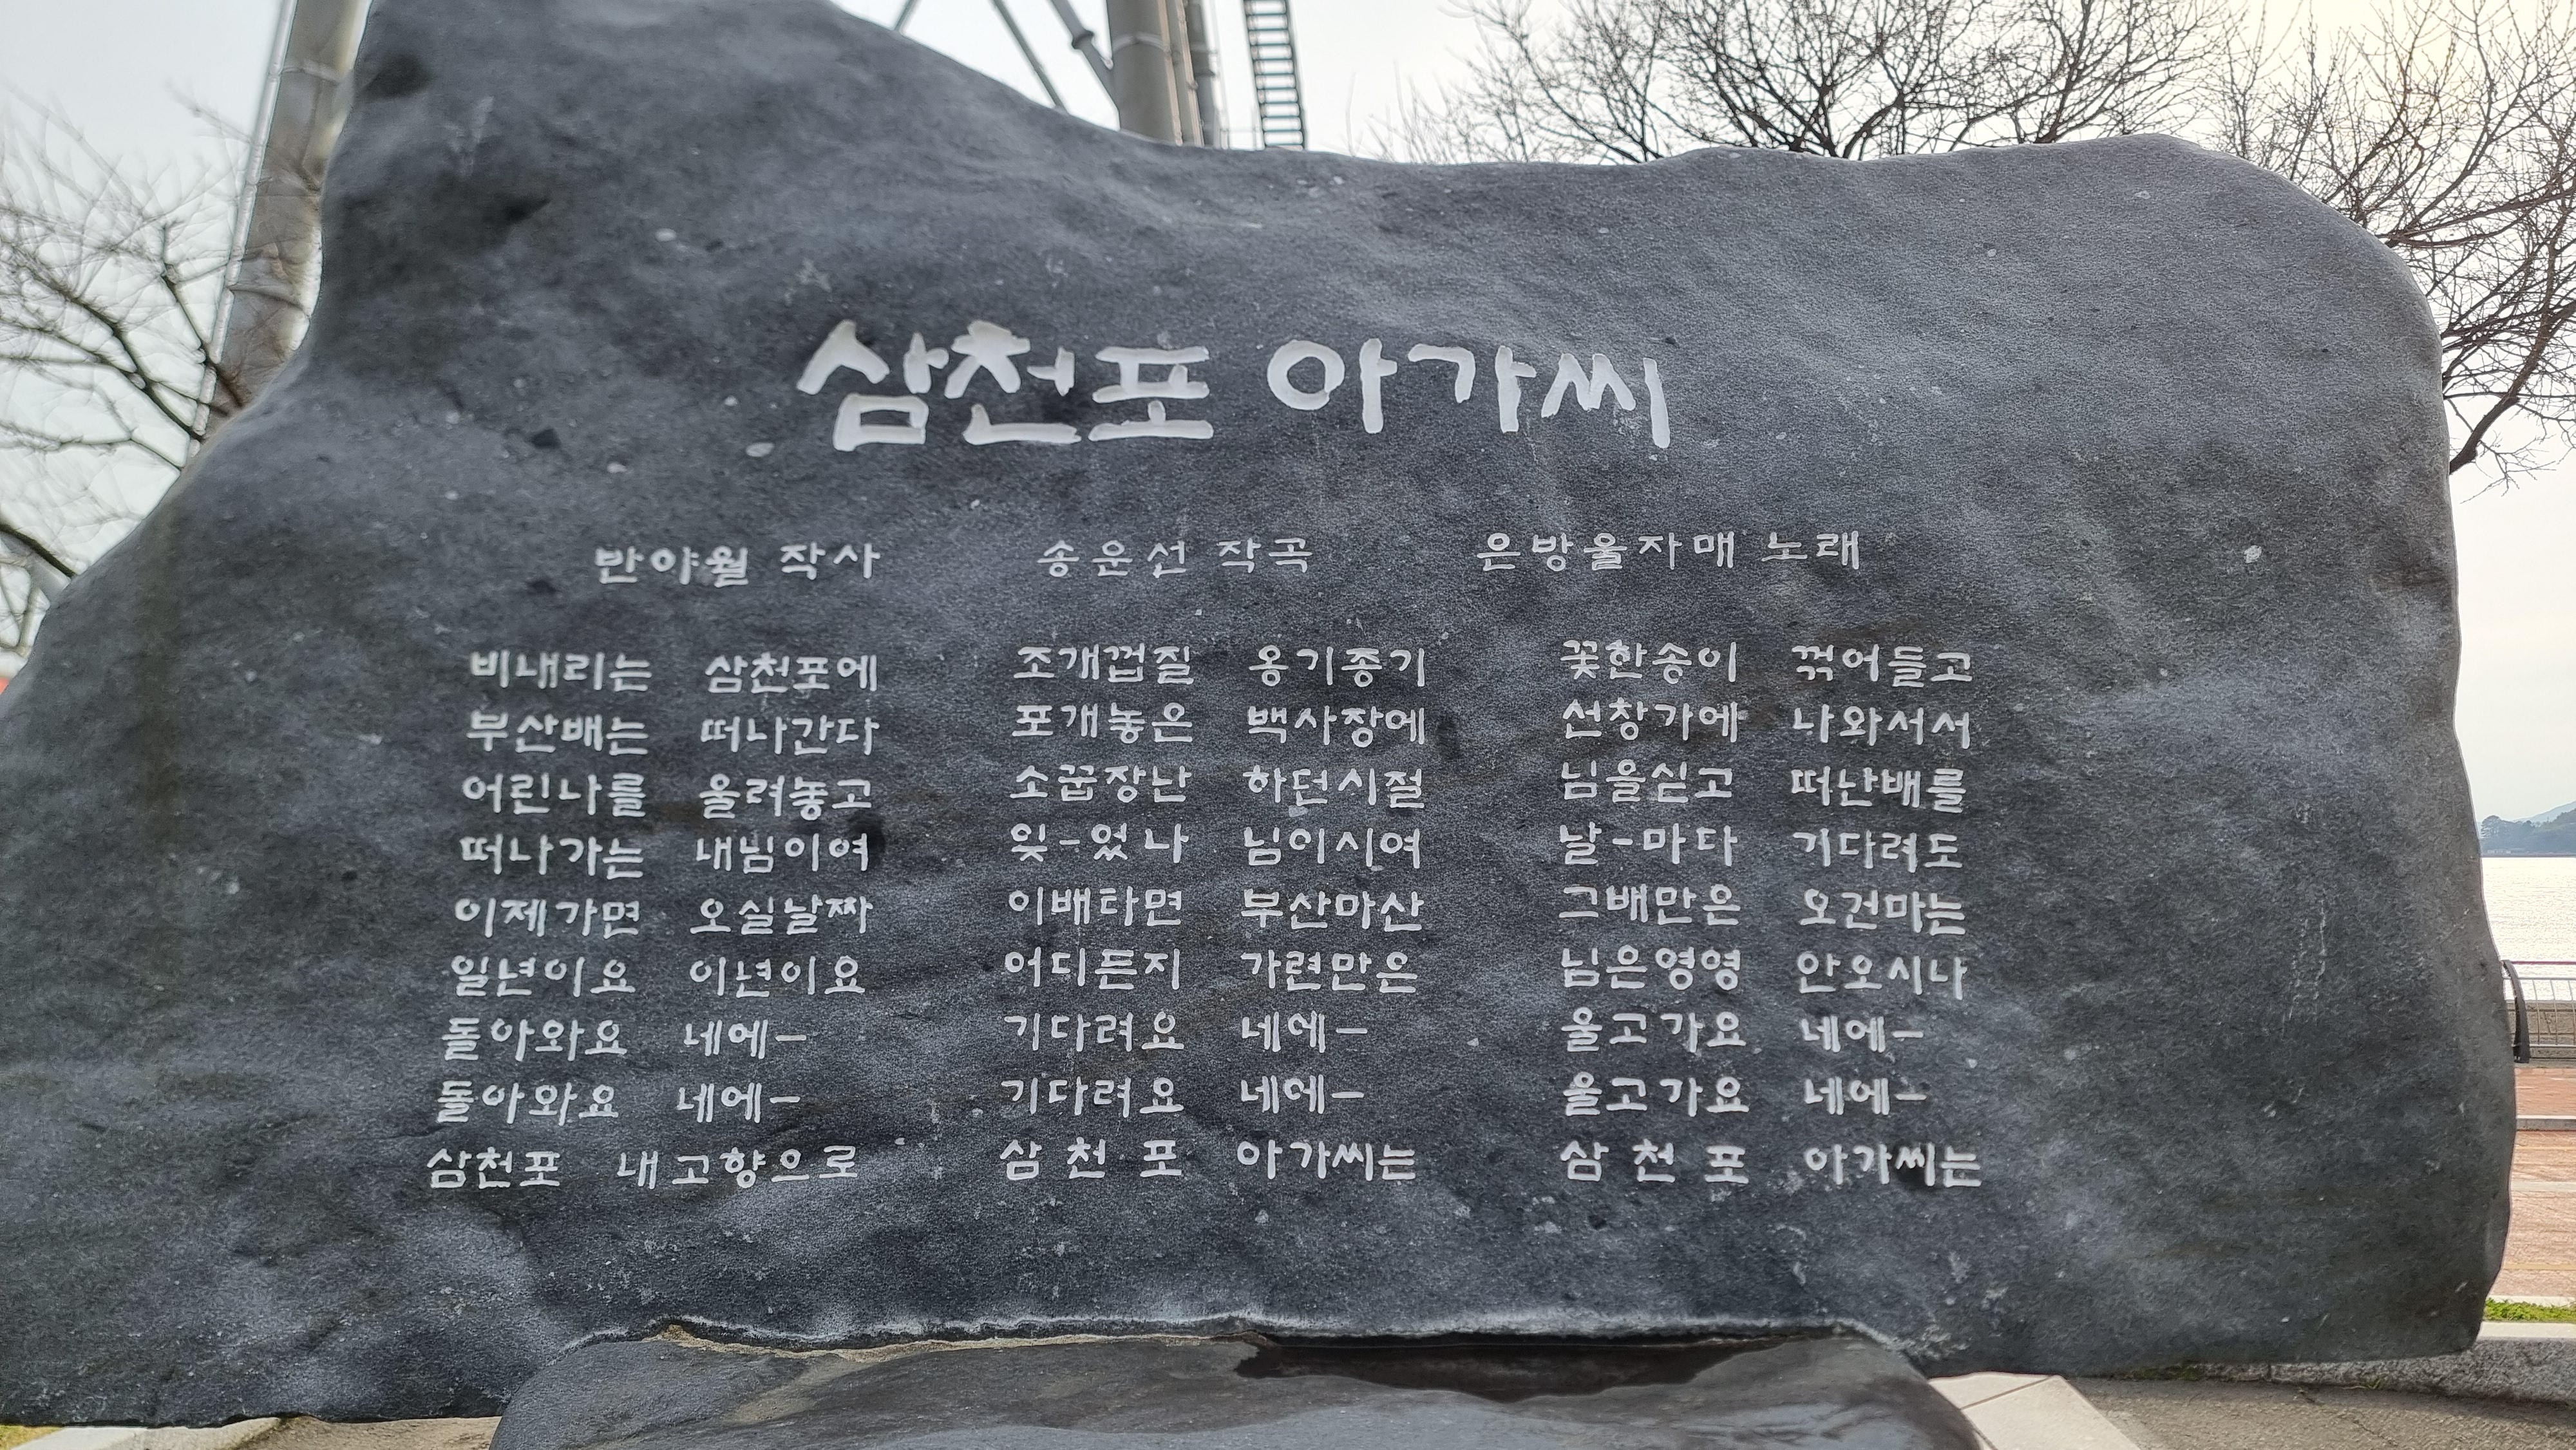 삼천포 아가씨
반야월 작사 송운선 작곡 은방울자매 노래
비내리는 삼천포에
부산배는 떠나간다
어린나를 울려놓고
떠나가는 내님이여
이제가면 오실날짜
일년이요 이년이요
돌아와요 네에-
돌아와요 네에-
삼천포 내고향으로
조개껍질 옹기종기
포개놓은 백사장에
소꿉장난 하던시절
잊-었나 님이시여
이배타면 부산마산
어디든지 가련만은
기다려요 네에-
기다려요 네에-
삼천포 아가씨는
꽃한송이 꺾어들고
선창가에 나와서서
님을싣고 떠난배를
날-마다 기다려도
그배만은 오건마는
님은영영 안오시나
울고가요 네에-
울고가요 네에-
삼천포 아가씨는